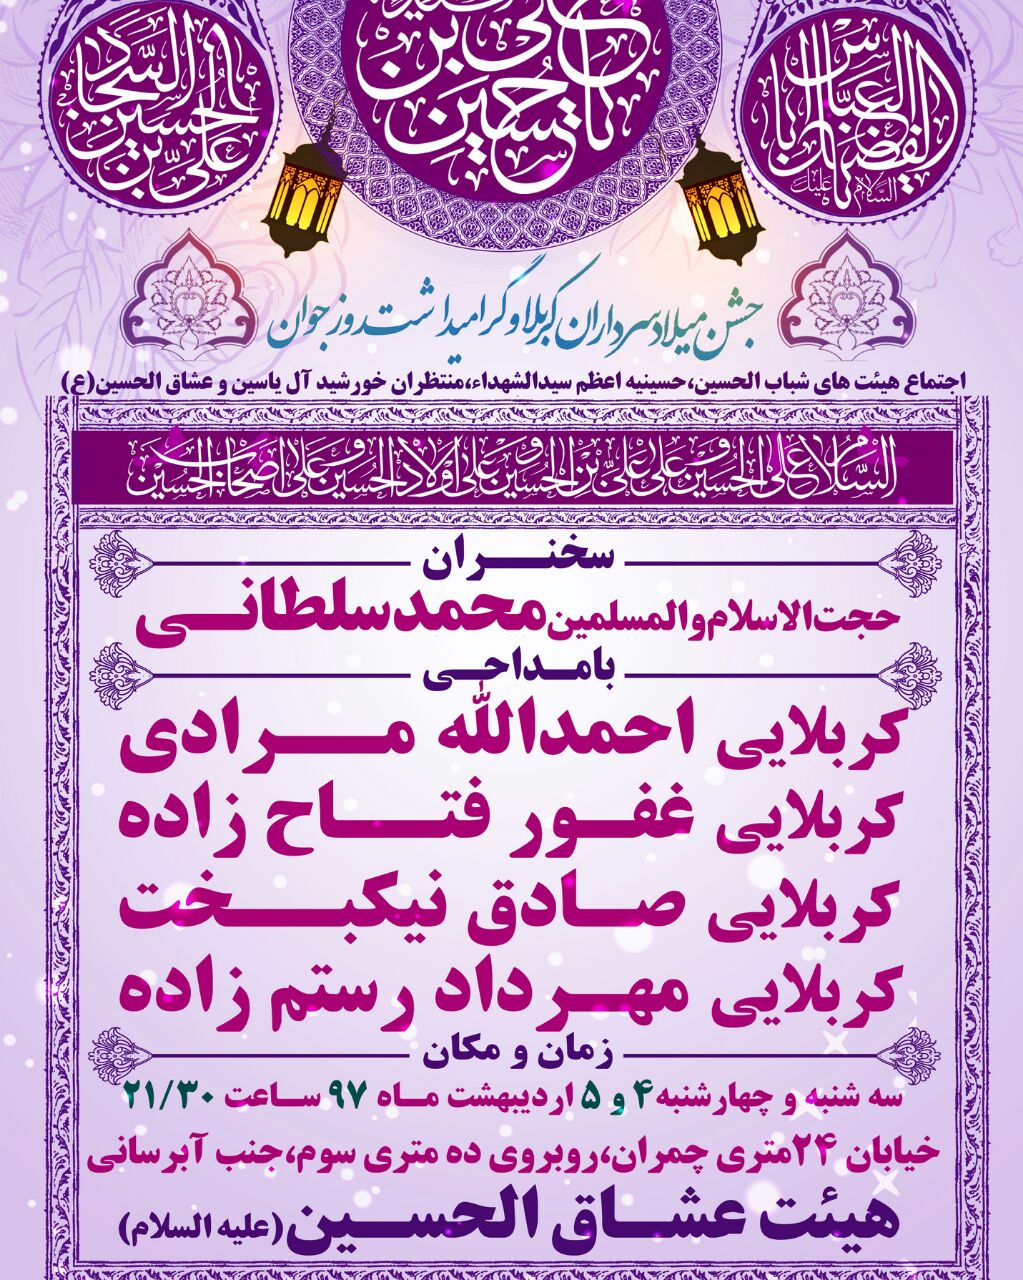 یا حسین بن علی
یا اباالفضل العباس
السلام علیک
علی بن الحسین السجاد
جشن میلاد سرداران کربلا و گرامیداشت روز جوان
اجتماع هیئت های شباب الحسین،حسینیه اعظم سیدالشهداء،منتظران خورشید آل یاسین و عشاق الحسین(ع)
السلام علی الحسین و علی علی بن الحسین و علی اولاد الحسین و علی اصحاب الحسین
سخنران
حجت الاسلام والمسلمین محمد سلطانی
بامداحی
کربلایی احمدالله مرادی
کربلایی غفور فتاح زاده
کربلایی صادق نیکبخت
کربلایی مهرداد رستم زاده
زمان و مکان
سه شنبه و چهارشنبه ۴ و ۵ اردیبهشت ماه ۹۷ ساعت ۲۱/۳۰
خیابان ۲۴متری چمران،روبروی ده متری سوم،جنب آبرسانی
هیئت عشاق الحسین(علیه السلام)